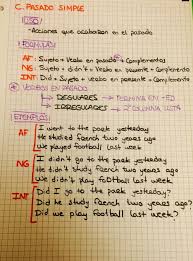 C. PASADO SIMPLE
USO
-Acciones que acabaron en el pasado
FORMULA
AF: Sujeto + Verbo en pasado + Complementos
NG: Sujeto + didn't + Verbo en presente + Complemento
INT: Did + Sujeto + verbo en presente + Complemento
* VERBOS EN PASADO
REGULARES → TERMINA EN -ED
IRREGULARES → 2ª COLUMNA LISTA
EJEMPLOS
AF I went to the park yesterday
He studied french two years ago
We played football last week
NG I didn't go to the park yesterday.
He didn't study french two years ago
We didn't play football last week
INT Did I go to the park yesterday?
Did he study french two years ago?
Did we play football last week?